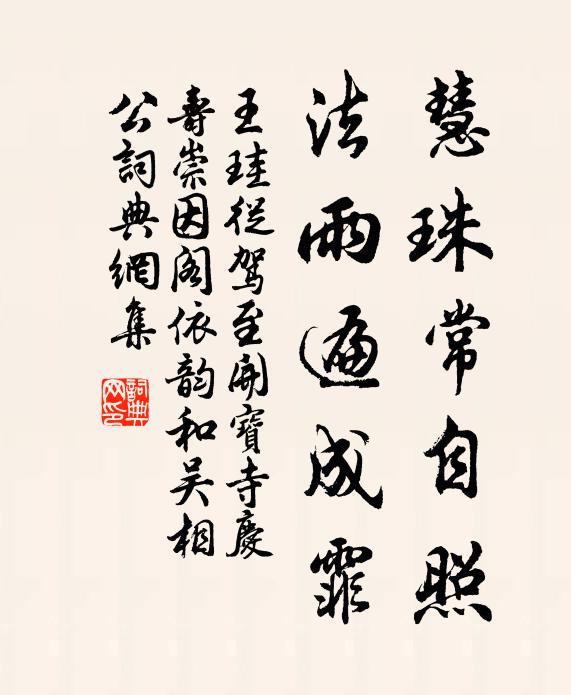 慧珠常自照
法雨遍成霏
王珪從駕至開寶寺慶
壽崇因閣依韵和吴相
公詞典網集
詞典網印